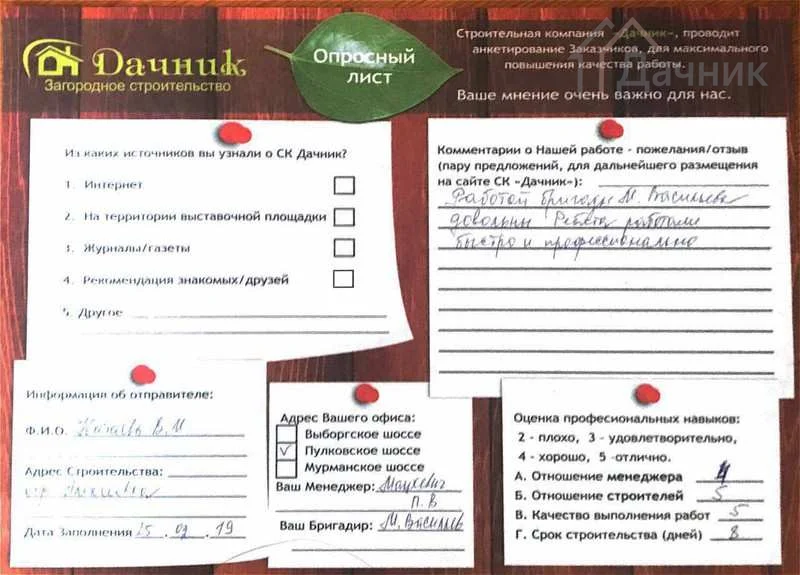 Дачник
Загородное строительство
Опросный
лист
Строительная компания «Дачник», проводит
анкетирование Заказчиков, для максимального
повышения качества работы.
Дачник
Ваше мнение очень важно для нас.
Из каких источников вы узнали о СК Дачник?
1. Интернет
2. На территории выставочной площадки
3. Журналы/газеты
4. Рекомендация знакомых/друзей
5. Другое
Комментарии о Нашей работе - пожелания/отзыв
(пару предложений, для дальнейшего размещения
на сайте СК «Дачник»):
Работой бригады М. Васильева
довольны Ребята работали
быстро и профессионально
Информация об отправителе:
Ф.И.О. В.М
Адрес Строительства:
Дата Заполнения 25.09.19
Адрес Вашего офиса:
Выборгское шоссе
✓ Пулковское шоссе
Мурманское шоссе
Ваш Менеджер: Мацкевич
П. В
Ваш Бригадир: М. Васильев
Оценка професиональных навыков:
2 - плохо, 3 - удовлетворительно,
4 - хорошо, 5 -отлично.
А. Отношение менеджера 4
Б. Отношение строителей 5
В. Качество выполнения работ 5
Г. Срок строительства (дней) 8